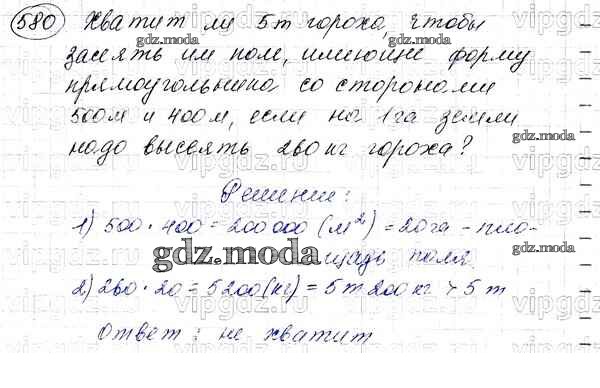 580 Хватит ли 5т гороха, чтобы
засеять им поле, имеющее форму
прямоугольника со сторонами
500м и 400м, если на 1га земли
надо высеять 260кг гороха?
Решение:
1) 500·400=200000(м²)=20га-пло-
щадь поля
2) 260·20=5200(кг)=5т200кг>5т
Ответ: не хватит
gdz.moda
gdz.moda
gdz.moda
gdz.moda
gdz.moda
gdz.moda
gdz.moda
gdz.moda
vipgdz.ru